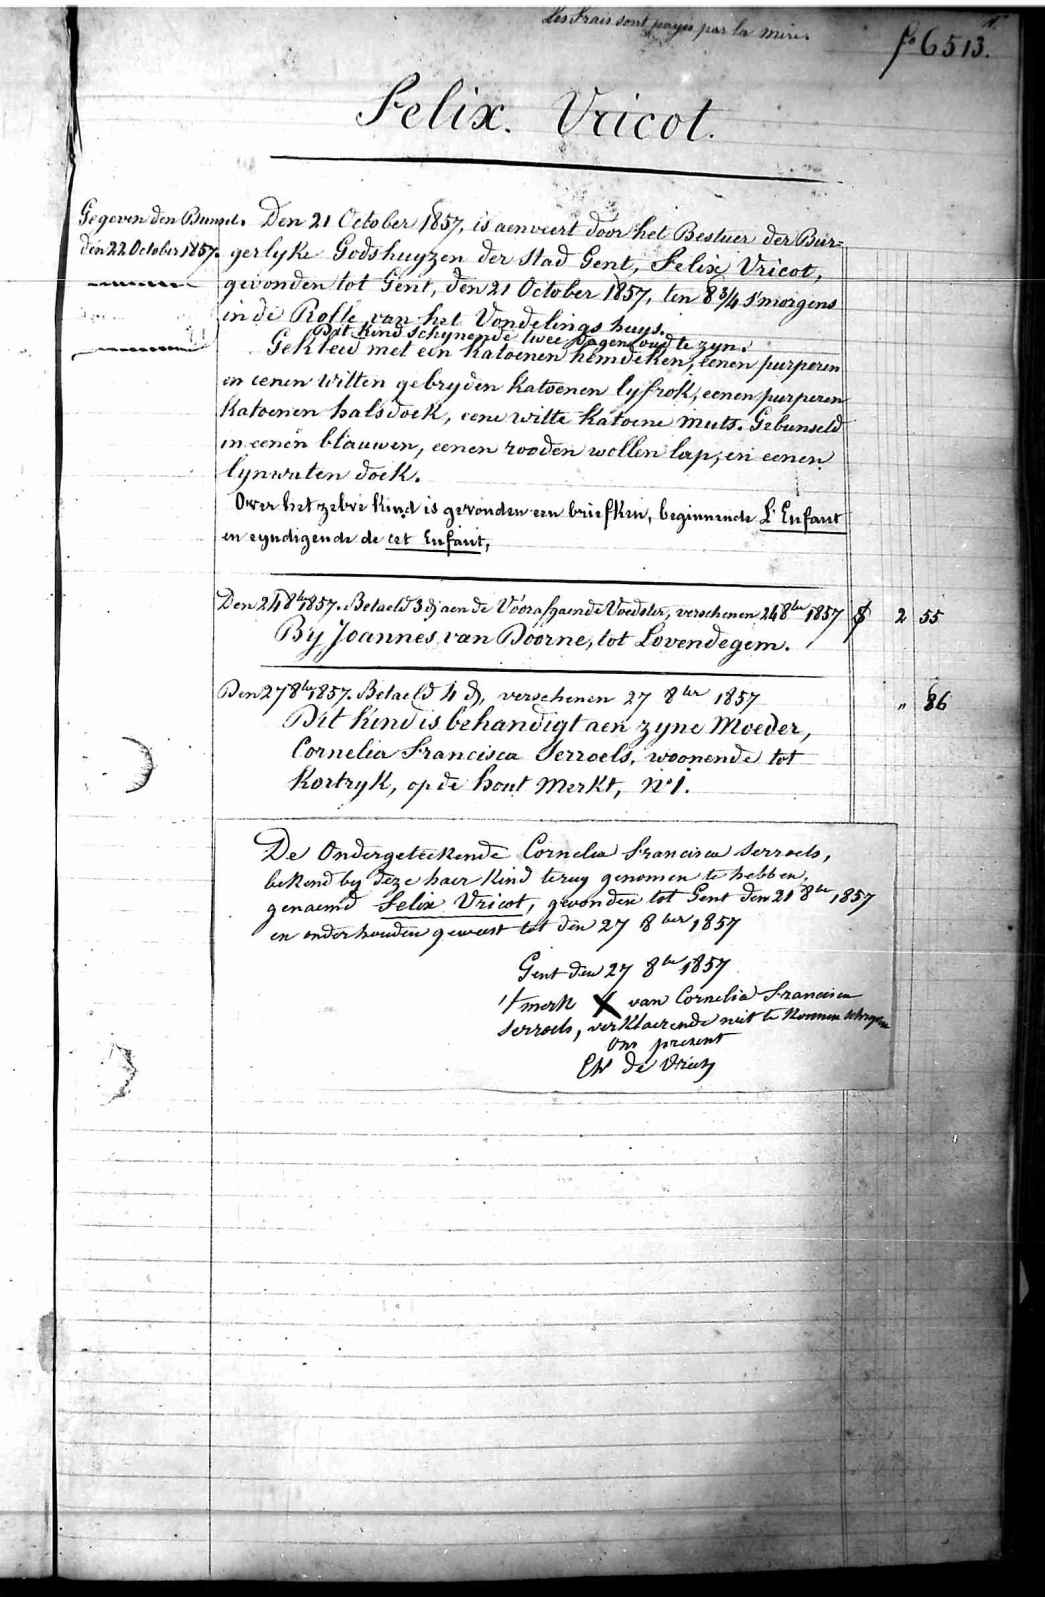 Les frais sont payés par la mère.
fo 6513.
Felix. Vricot.
Gegeven den Bunsel.
den 22 October 1857.
Den 21 October 1857, is aenveert door het Bestuer der Bur=
gerlyke Godshuyzen der stad Gent, Felix Vricot,
gevonden tot Gent, den 21 October 1857, ten 8 3/4 s'morgens
in de Rolle van het Vondelings huys.
Dit Kind schynende twee dagen oud te zyn.
Gekleed met een katoenen hemdeken, eenen purperen
en eenen witten gebryden katoenen lyfrok, eenen purperen
katoenen halsdoek, eene witte katoene muts. Gebunseld
in eenen blauwen, eenen rooden wollen lap, en eenen
lynwaten doek.
Over het zelve kind is gevonden een briefken, beginnende L'Enfant
en eyndigende de cet Enfant,
Den 24 8be 1857. Betaeld 3 d aen de Voorafgaende Voedster, verschenen 24 8ber 1857 2 55
By Joannes van Doorne, tot Lovendegem.
Den 27 8be 1857. Betaeld 4 d, verschenen 27 8ber 1857 " 86
Dit kind is behandigt aen zyne Moeder,
Cornelia Francisca Serroels, woonende tot
Kortryk, op de hout Merkt, No 1.
De Ondergeteekende Cornelia Francisca Serroels,
bekend by deze haer Kind terug genomen te hebben,
genaemd Felix Vricot, gevonden tot Gent den 21 8ber 1857
en onderhouden geweest tot den 27 8ber 1857
Gent den 27 8ber 1857
't merk X van Cornelia Francisca
Serroels, verklaerende niet te konnen schryven
Ons present
de Vriese